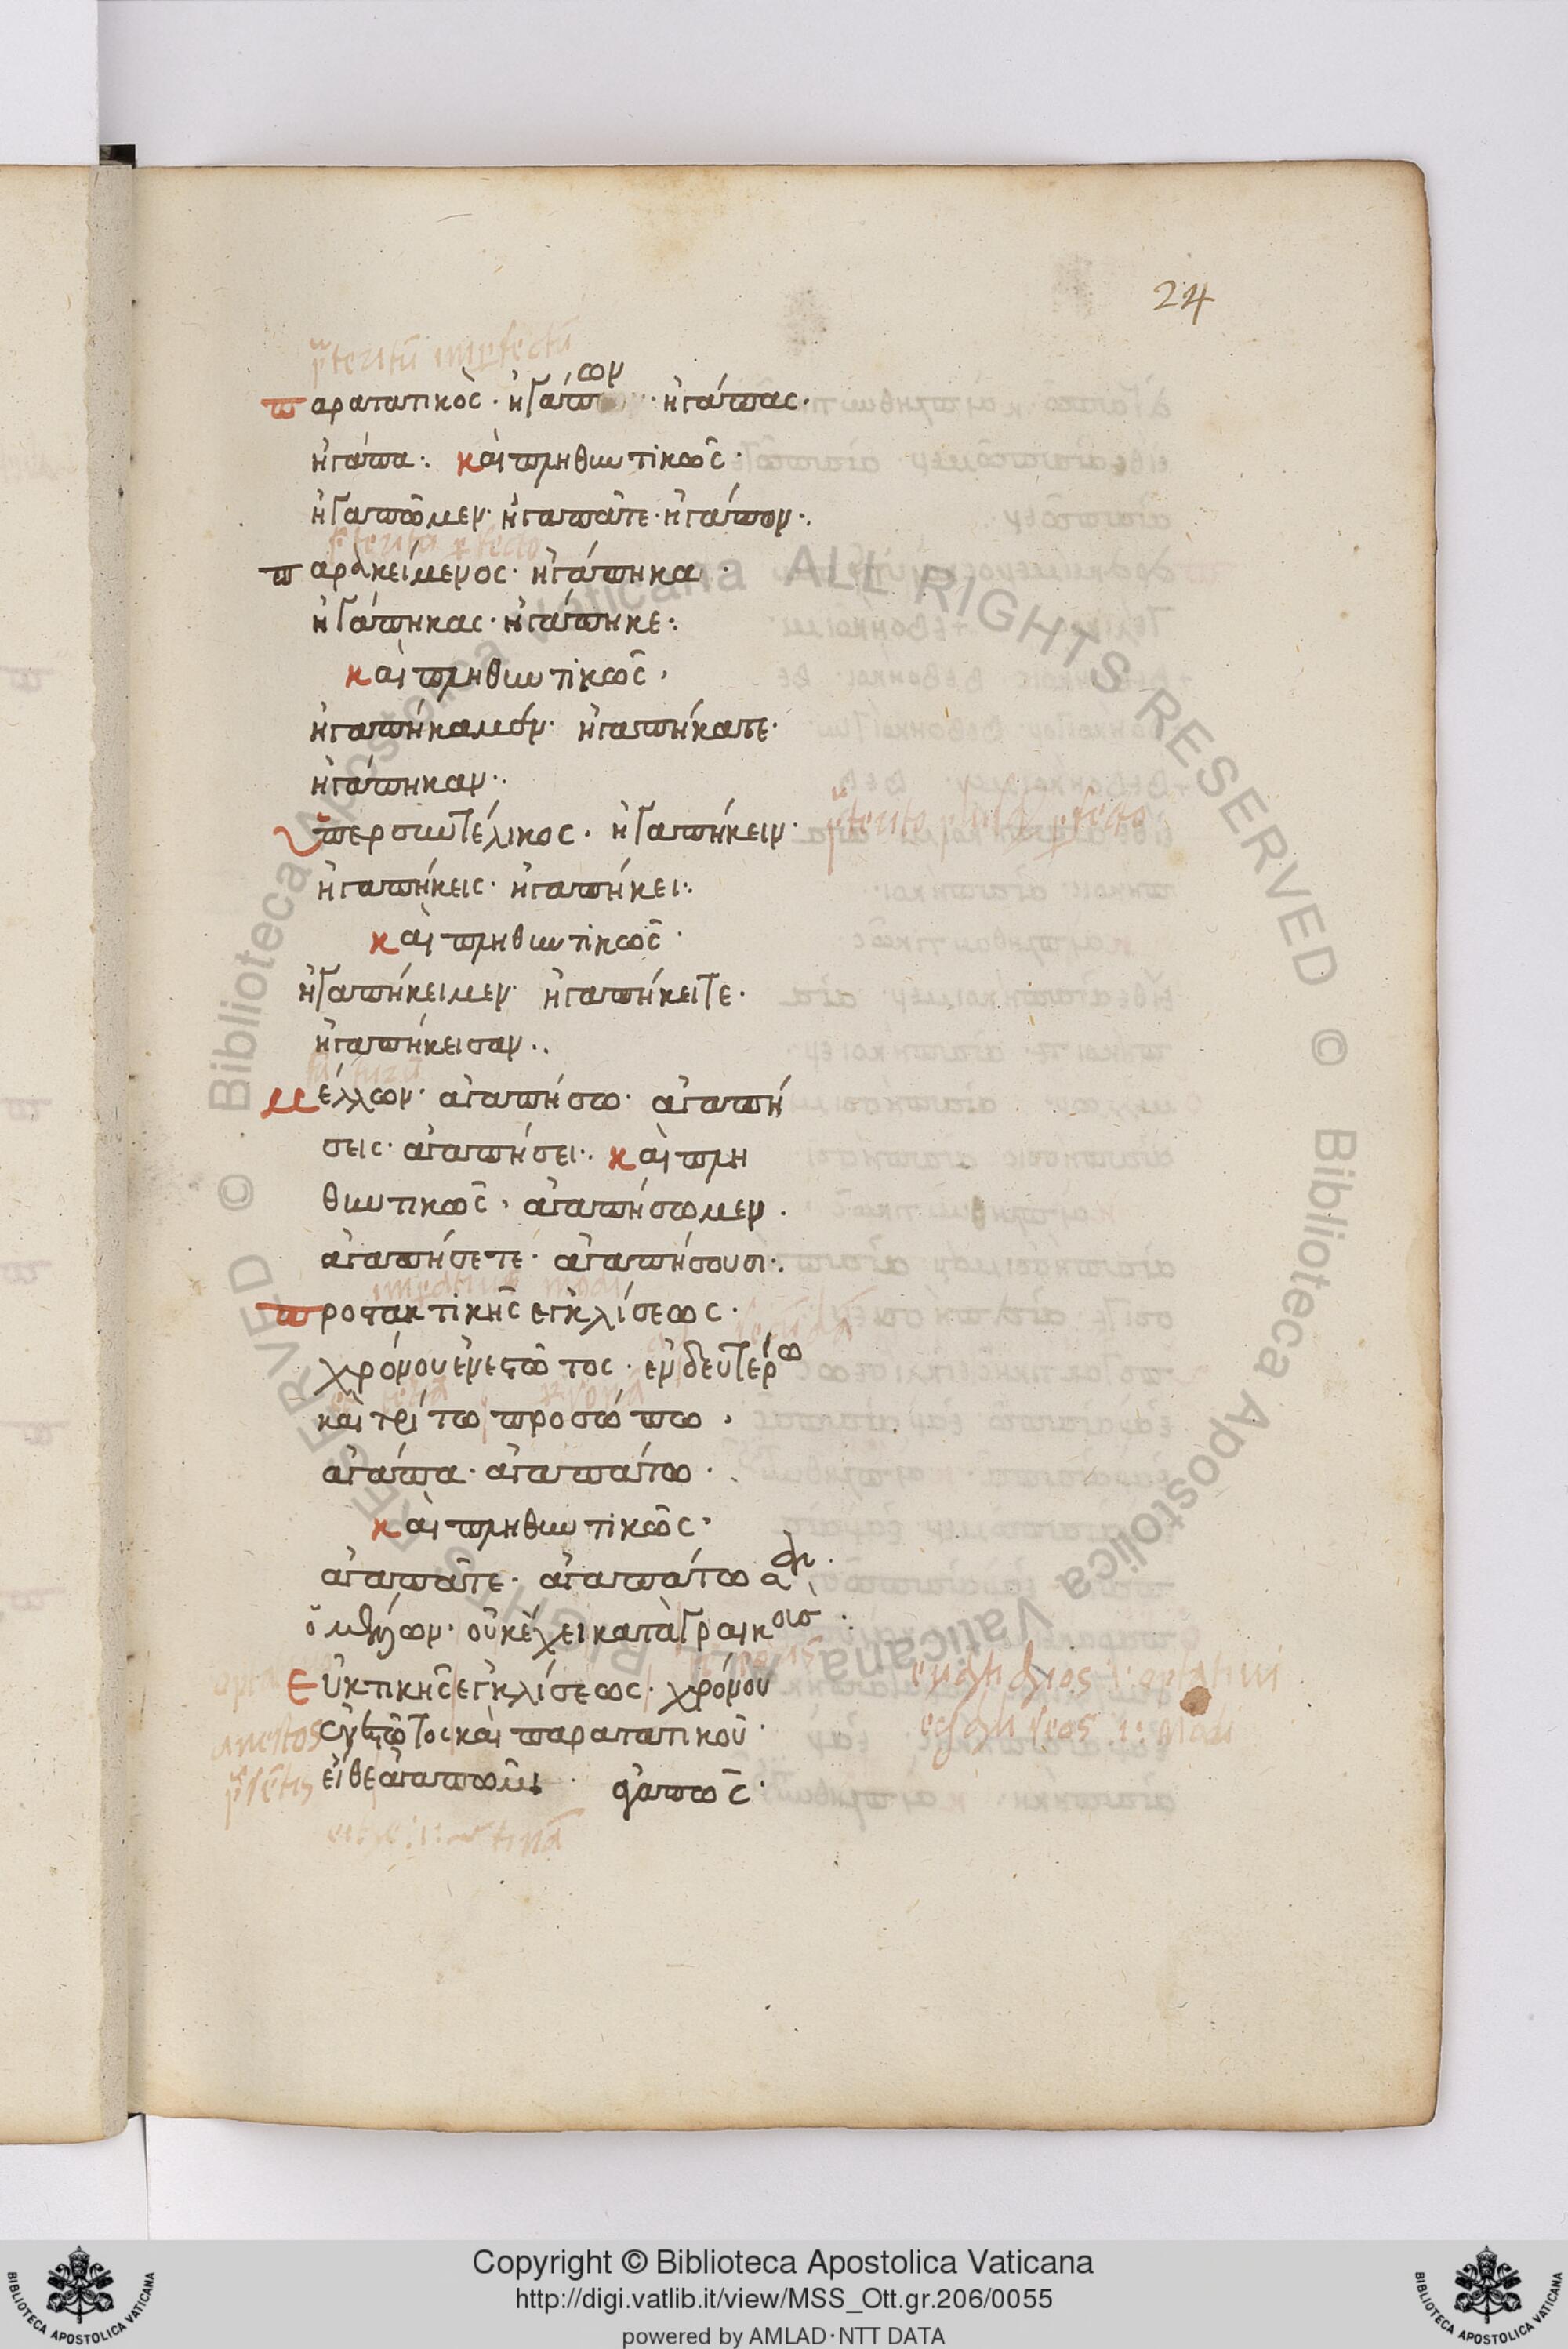 24
p̄teritū imperfectū
παρατατικὸς· ἠγάπων· ἠγάπας·
ἠγάπα:· καὶ πληθυντικῶς·
ἠγαπῶμεν· ἠγαπᾶτε· ἠγάπων:·
παρακείμενος· ἠγάπηκα·
ἠγάπηκας· ἠγάπηκε:·
καὶ πληθυντικῶς·
ἠγαπήκαμεν· ἠγαπήκατε·
ἠγάπηκαν:·
ὑπερσυντέλικος· ἠγαπήκειν·
ἠγαπήκεις· ἠγαπήκει:·
καὶ πληθυντικῶς·
ἠγαπήκειμεν· ἠγαπήκειτε·
ἠγαπήκεισαν:·
μέλλων· ἀγαπήσω· ἀγαπή
σεις· ἀγαπήσει:· καὶ πλη
θυντικῶς· ἀγαπήσωμεν·
ἀγαπήσετε· ἀγαπήσουσι:·
προστακτικῆς ἐγκλίσεως·
χρόνου ἐνεστῶτος· ἐν δευτέρω
καὶ τρίτω προσώπω·
ἀγάπα· ἀγαπάτω·
καὶ πληθυντικῶς·
ἀγαπᾶτε· ἀγαπάτωσαν·
ὁ μέλλων· οὐκ ἔχει κατὰ γραικοισ:
εὐκτικῆς ἐγκλίσεως· χρόνου
ἐνεστῶτος καὶ παρατατικοῦ·
εἴθε ἀγαπῶμι· ἀγαπῶς·
Copyright © Biblioteca Apostolica Vaticana
http://digi.vatlib.it/view/MSS_Ott.gr.206/0055
powered by AMLAD·NTT DATA